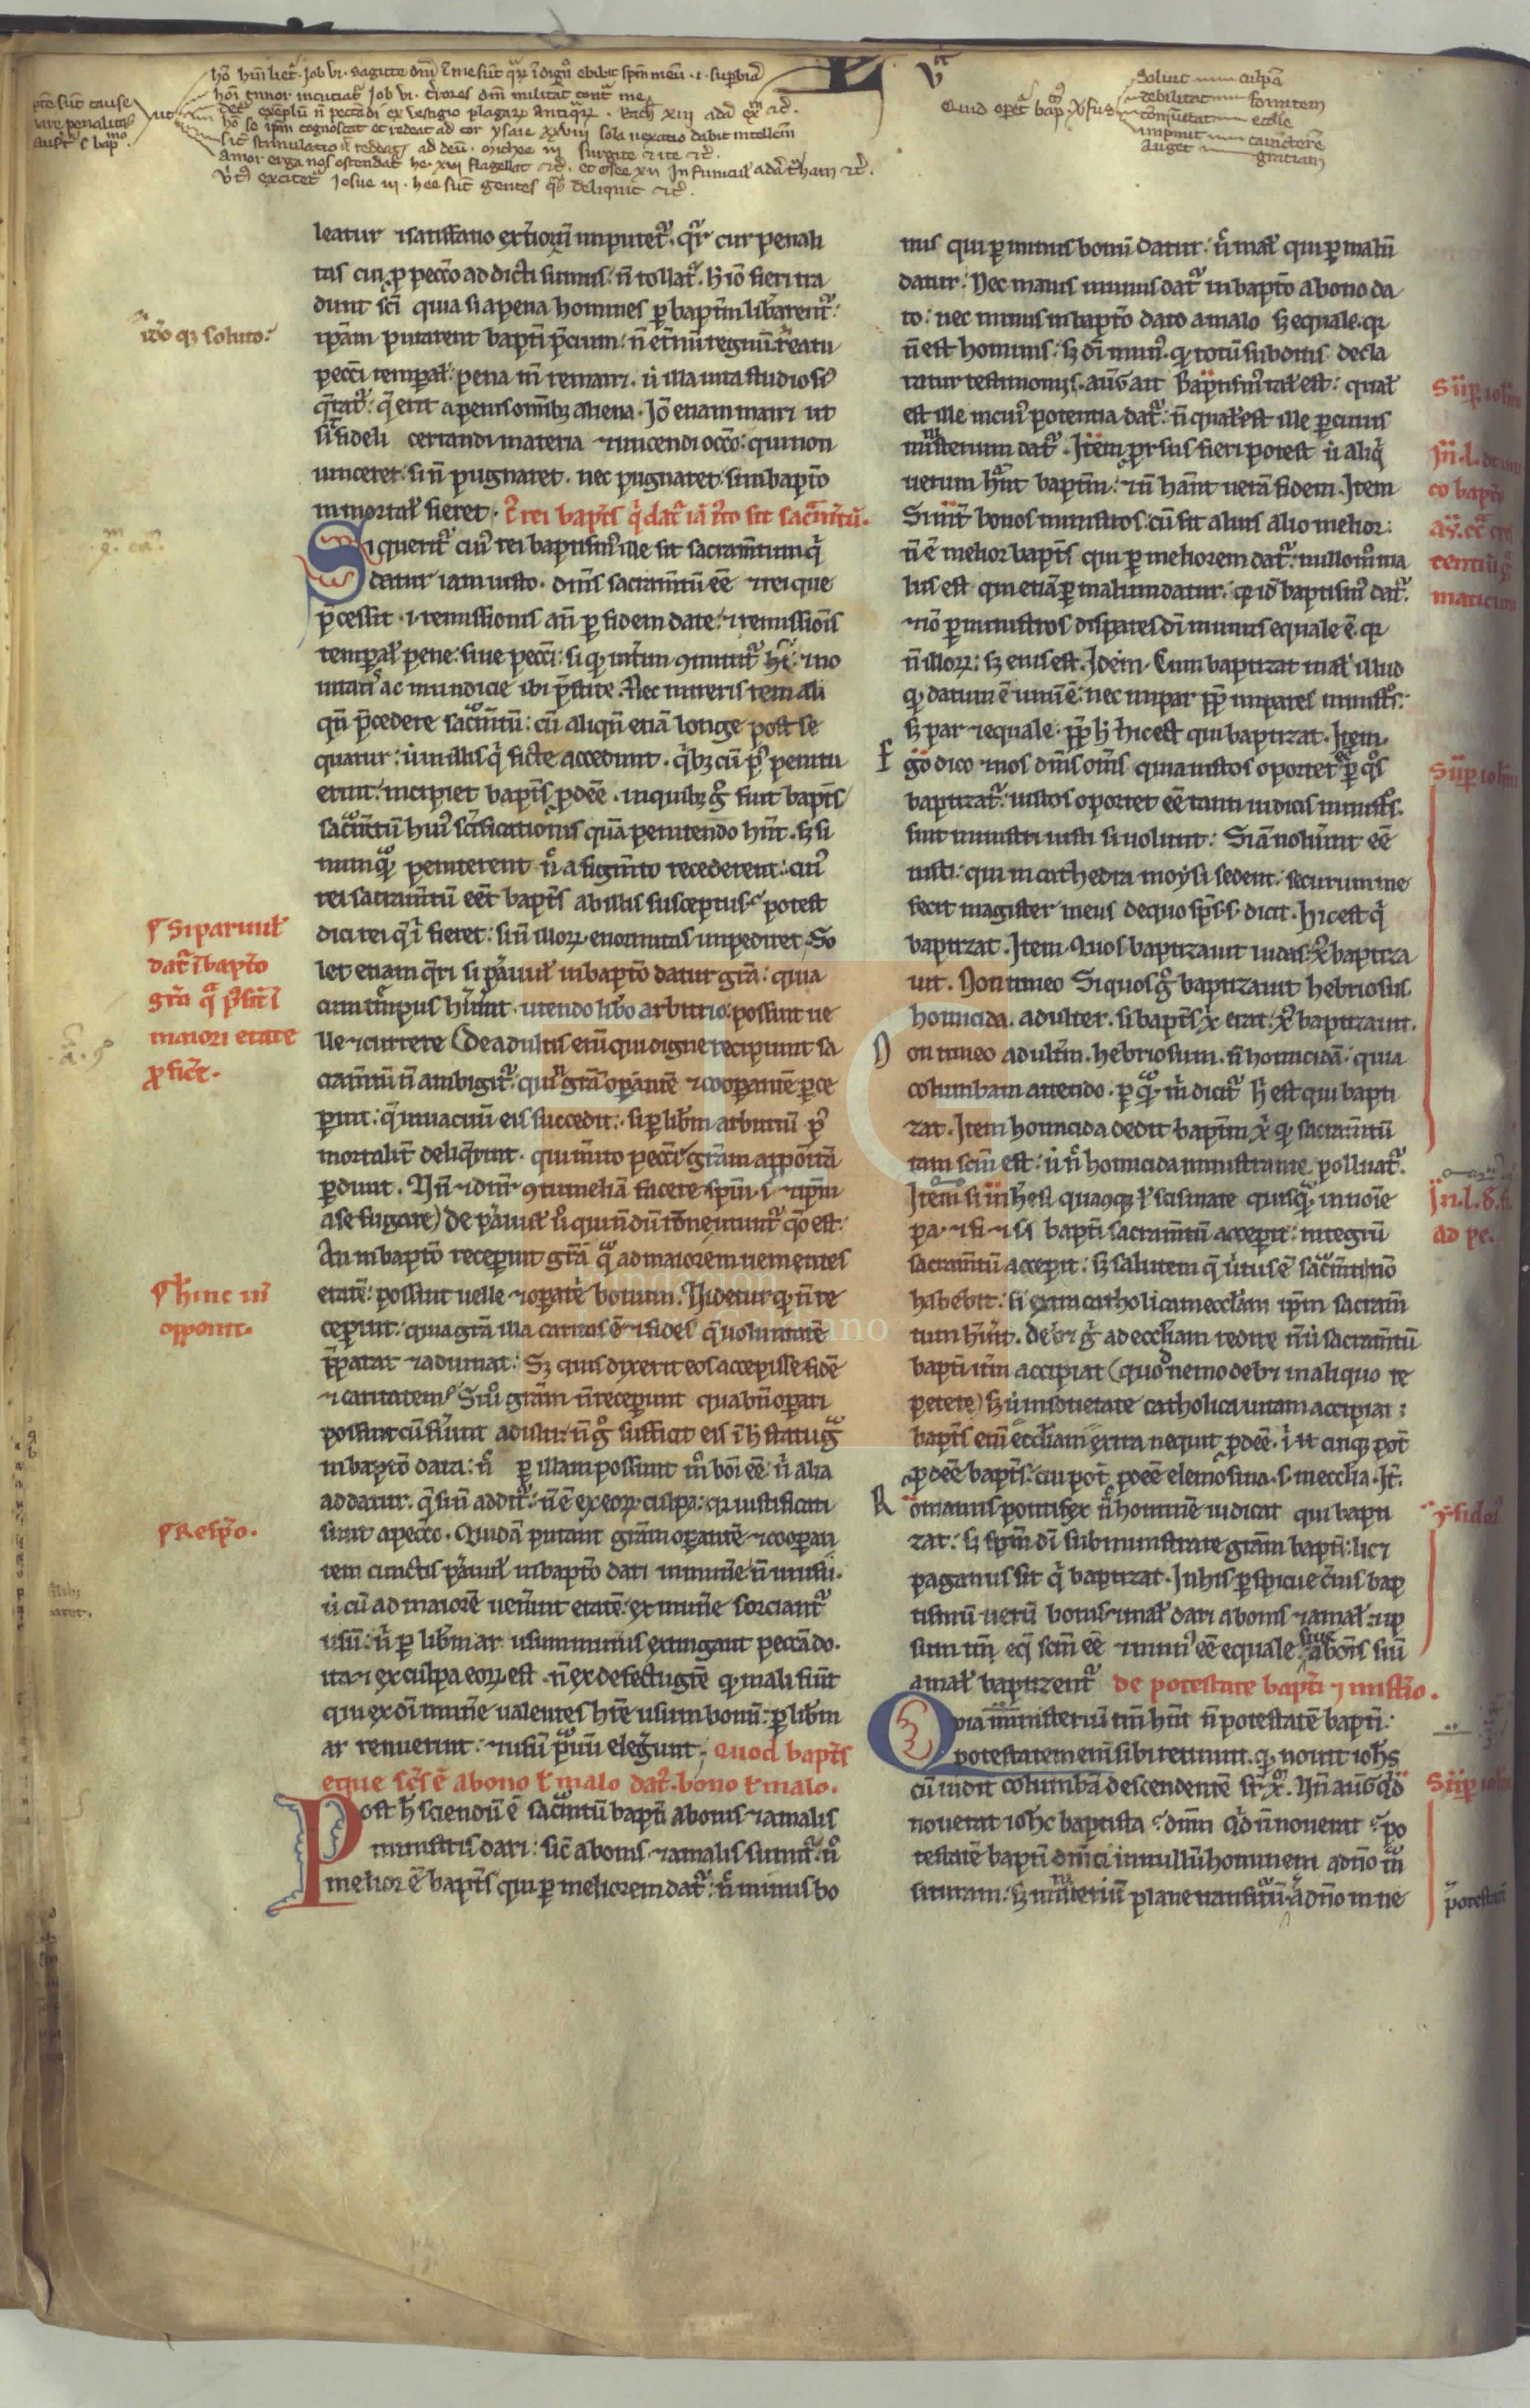 hõ humiliet᷑. Job vi. sagitte dñi ĩ me sũt quaꝝ ĩdignº ebibit spm̃ meũ .i. supbiã
hõi timor incutiat᷑ Job vi. t̃rores dñi militãt cont᷑ me
det᷑ exẽplũ ñ peccãdi ex vestigio plagaꝝ antiquaꝝ.
hõ se ipm̃ cognoscat et redeat ad cor ysaie xxviii sola vexatio dabit intellectũ
ad deũ. michee ii surgite ⁊ ite ⁊c̃.
amor erga nos ostendat᷑ he. xii flagellat ⁊c̃.
excitet᷑ Josue iii. hee sũt gentes dẽliquit ⁊c̃.
pctõ sũt cause
quare penalitas
L V
Quid opet᷑ bap.
Soluit culpã
debilitat fomitem
ecctie
imprimit caracterẽ
auget gratiam
leatur ⁊ satisfatio exteriorũ imputet᷑. querit᷑ cur penali
tas cui ꝓ peccõ addicti sumus. ñ tollat᷑. hͦ iõ fieri tra
dunt sci quia si a pena homines ꝑ baptm̃ liƀarent᷑:
ipam putarent bapti p̃cium. ñ et̃nũ regnũ. reatu
pecci temporal pena tñ remanet. ut illa vita studiosiº
q̃rat᷑: q̃ erit a penis omibꝫ aliena. Jõ etiam manet ut
sit fideli certandi materia ⁊ uincendi occo: qui non
uinceret si ñ pugnaret. nec pugnaret si in bapto
immortal fieret. cº rei bapts q̃ dat᷑ iã iusto sit sacm̃tũ.
Si querit᷑ cuiº rei baptismº ille sit sacramtum q̃
datur iam iusto. dicimº sacramtũ eẽ ⁊ rei que
p̃cessit. i. remissionis añ ꝑ fidem date. ⁊ remissiõis
temporal pene. siue pecci. si qͩ interim ɔmittit᷑ hͦ: ⁊ no
uitatis ac mundicie ibi p̃stite. Nec mireris rem ali
qñ p̃cedere sacm̃tũ: cũ aliqñ etiã longe post se
quatur. ut in illis q̃ ficte accedunt. q̃bꝫ cũ pº penitu
erint. incipiet bapts ꝓdeẽ. in quibꝫ gͦ fuit bapts
sacm̃tũ huiº sc̃ificationis quã penitendo hñt. sꝫ si
numqͣ peniterent nͨ a figmto recederent: cuiº
rei sacramtũ eẽt bapts ab illis susceptus: potest
dici rei q̃ ĩ fieret: si ñ illoꝝ enormitas impediret. So
let etiam q̃ri si p̃uulis in bapto datur gra: quia
cum tempus hñt. utendo liƀo arbitrio. possint ue
lle ⁊ currere De adultis eĩ qui digne recipiunt sa
cramtũ ñ ambigit᷑. quin gram opantẽ ⁊ coopantẽ ꝑce
perint: q̃ in uacuũ eis succedit. si ꝑ liƀm arbitriũ pº
mortalit᷑ deliq̃rint. qui mito pecci gram appositã
ꝑdunt. Uñ ⁊ dñr ɔtumeliã facere spm̃. s. ⁊ ipm̃
a se fugare) de p̃uulis uº qui ñdũ rõne utunt᷑ qͦ est.
An in bapto receperint grã qͣ ad maiorem uenientes
etatẽ. possint uelle ⁊ opare bonum. Uidetur qͩ ñ re
ceperint. quia gra illa caritas ẽ ⁊ fides q̃ uoluntatẽ
p̃parat ⁊ adiuuat. Sꝫ quis dixerit eos accepisse fidẽ
⁊ caritatem? Si uº gram ñ receperunt qua bñ opari
possint cũ fu̾int adulti. ñ gͦ sufficit eis ĩ hͦ statu gra
in bapto data. nͨ ꝑ illam possunt mº boni eẽ. ñ alia
addatur. q̃ si ñ addit᷑. ñ ẽ ex eoꝝ culpa: qꝛ iustificati
sunt a pecco. Quidã putant gram opantẽ ⁊ coopan
tem cunctis p̃uulis in bapto dari in munẽ ñ in usu.
ut cũ ad maiorẽ uen̾int etatẽ. ex mun̾e sorciant᷑
usũ. nͥ ꝑ liƀm ar usum mun̾is extingant peccãdo.
ita ⁊ ex culpa eoꝝ est. ñ ex defectu gre qͩ mali fiũt
qui ex dĩ mun̾e ualentes hr̃e usum bonũ. ꝑ liƀm
ar renuerunt. ⁊ usũ p̃uũ elegunt. Quod bapts
eque scs ẽ a bono uͭ malo dat᷑. bono uͭ malo.
Post hͨ sciendũ ẽ sacm̃tũ bapti a bonis ⁊ a malis
ministris dari: sic̃ a bonis ⁊ a malis sumit᷑. nͦ
melior ẽ bapts qui ꝑ meliorem dat᷑. nͨ minus bo
nus qui ꝑ minus bonũ datur. nͨ mal qui ꝑ malũ
datur. Nec maius munus dat᷑ in bapto a bono da
to: nec minus in bapto dato a malo sꝫ equale. qꝛ
ñ est hominis: sꝫ dĩ munº. qͩ totũ subditis decla
ratur testimoniis. aug̃ ait Baptismº tal est: qual
est ille in cuiº potentia dat᷑. ñ qual est ille ꝑ cuius
ministerium dat᷑. Item pᷣsus fieri potest ut aliqͥ
uerum hñt baptm̃. ⁊ ñ hãnt uerã fidem. Item
Sumt bonos ministros. cũ sit alius alio melior:
ñ ẽ melior bapts qui ꝑ meliorem dat᷑. nullo mº ma
lus est qui etiã ꝑ malum datur. qꝛ id baptismº dat᷑.
⁊ iõ ꝑ ministros dispares dĩ munus equale ẽ. qꝛ
ñ illoꝝ: sꝫ eius est. Idem. Cum baptizat mal illud
qͩ datum ẽ unũ ẽ. nec impar ꝓpt̃ impares ministros.
sꝫ par ⁊ equale. ꝓpt̃ hͨ hic est qui baptizat. Item.
Ego dico ⁊ nos dicimº omˢ quia iustos oportet ꝑ qͦs
baptizat᷑. iustos oportet eẽ tanti iudicis ministros.
sint ministri iusti si uolunt. Si aũ nolu̾int eẽ
iusti. qui in cathedra moysi sedent. securum me
fecit magister meus de quo sps. s. dicit. hic est q̃
baptizat. Item. Quos baptizauit iudas. xͦ baptiza
uit. Non timeo Si quos gͦ baptizauit hebriosus.
homicida. adulter. si bapts xͥ erat. xͦ baptizauit.
Non timeo adultm̃. hebriosum. ñ homicidã. quia
columbam attendo. ꝑ qͣ m̃ dicit᷑ hͨ est qui bapti
zat. Item homicida dedit baptm̃ xͥ. qͩ sacramtũ
tam scm̃ est. ut nͨ homicida ministrante polluat᷑.
Item si in hesi quacunqꝫ uͭ scismate quisqͣ. in noĩe
pa. ⁊ fi ⁊ s. s. bapti sacramtũ accepit. integrũ
sacramtũ accepit. sꝫ salutem q̃ uirtus ẽ sacm̃ti nõ
habebit. si extra catholicam ecctiam ipm̃ sacram
tum hũit. debet gͦ ad ecctiam redire ñ ut sacramtũ
bapti itm̃ accipiat (quod nemo debet in aliquo re
petere) sꝫ ut in societate catholica uitam accipiat.
bapts enĩ ecctiam extra nequit ꝓdeẽ.
ꝓdeẽ bapts. cui pot̃ ꝓdeẽ elemosina. s. in ecctia. It̃.
Romanus pontifex nͨ hominẽ iudicat qui bapti
zat. sꝫ spm̃ dĩ subministrare gram bapti. licet
paganus sit q̃ baptizat. In his ꝑspicue cernis bap
tismũ uerũ bonis ⁊ mal dari a bonis ⁊ a mal.
sum tñ eque scm̃ eẽ ⁊ munº eẽ equale siue a bonis siue
a mal baptizent᷑ de potestate bapti ⁊ mistio.
Quia ministeriũ tm̃ hñt ñ potestatẽ bapti.
potestatem enĩ sibi retinuit. qͩ nouit iohs
cũ uidit columbã descendentẽ suꝑ xͫ. Uñ aug̃ qͥd
nouerat iohc baptista? dñm Qͥd ñ nouerat? po
testatẽ bapti dñici in nullũ hominem a dño tran
situram. sꝫ ministeriũ plane transiturũ. a dño in ne
itõ qꝫ soluto.
¶ Si paruul
dat᷑ ĩ bapto
gra qͣ possit ĩ
maiori etate
ꝓficẽ.
¶ hinc uº
opponit.
¶ Respo.
Sup ioh
In l. de uni
co bapto
Sup ioh
In l. d. fi.
ad pe.
ysidoꝝ
Sup ioh
potestatẽ